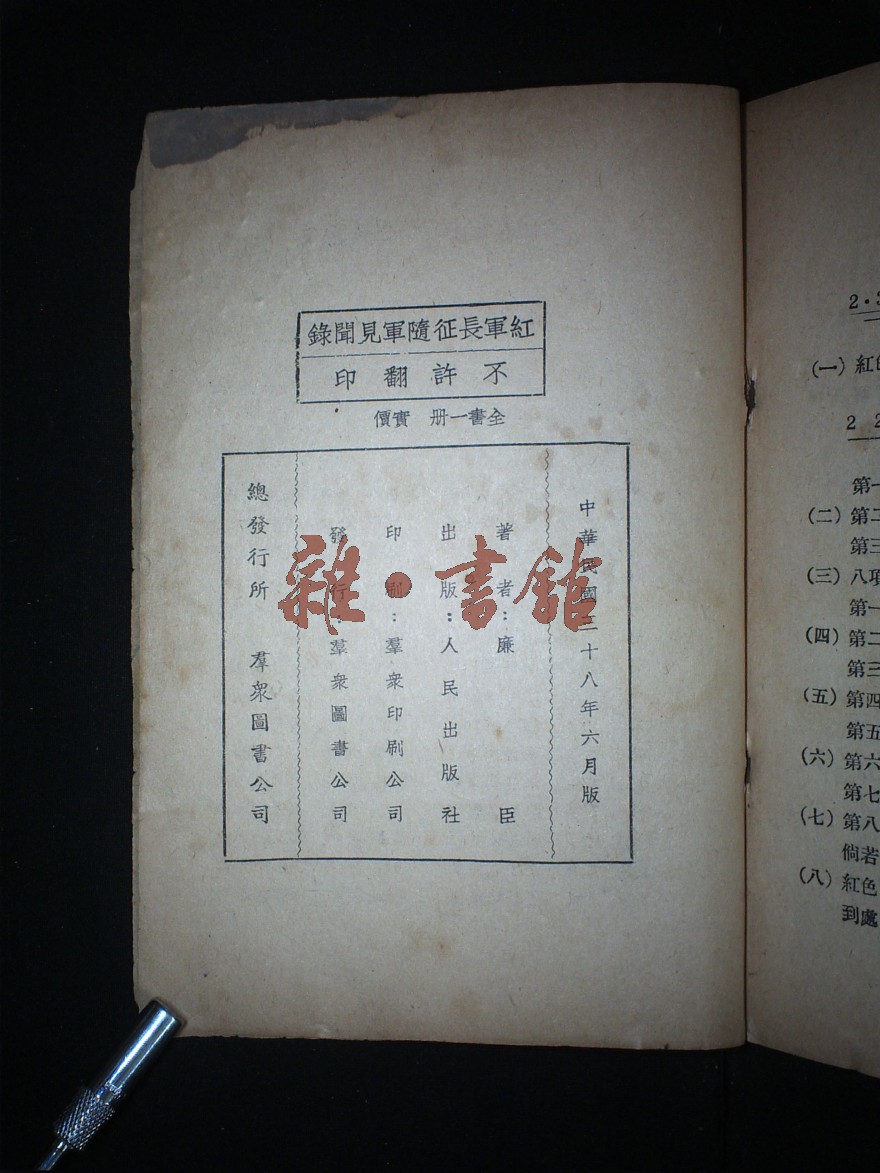 紅軍長征隨軍見聞錄
不許翻印
全書一册 實價
中華民國三十八年六月版
著者:廉臣
出版:人民出版社
印刷:羣衆印刷公司
發行:羣衆圖書公司
總發行所 羣衆圖書公司
雜·書館
2·3
(一)紅
2 2
第一
(二)第二
第三
(三)八項
第一
(四)第二
第三
(五)第四
第五
(六)第六
第七
(七)第八
倘若
(八)紅色
到處